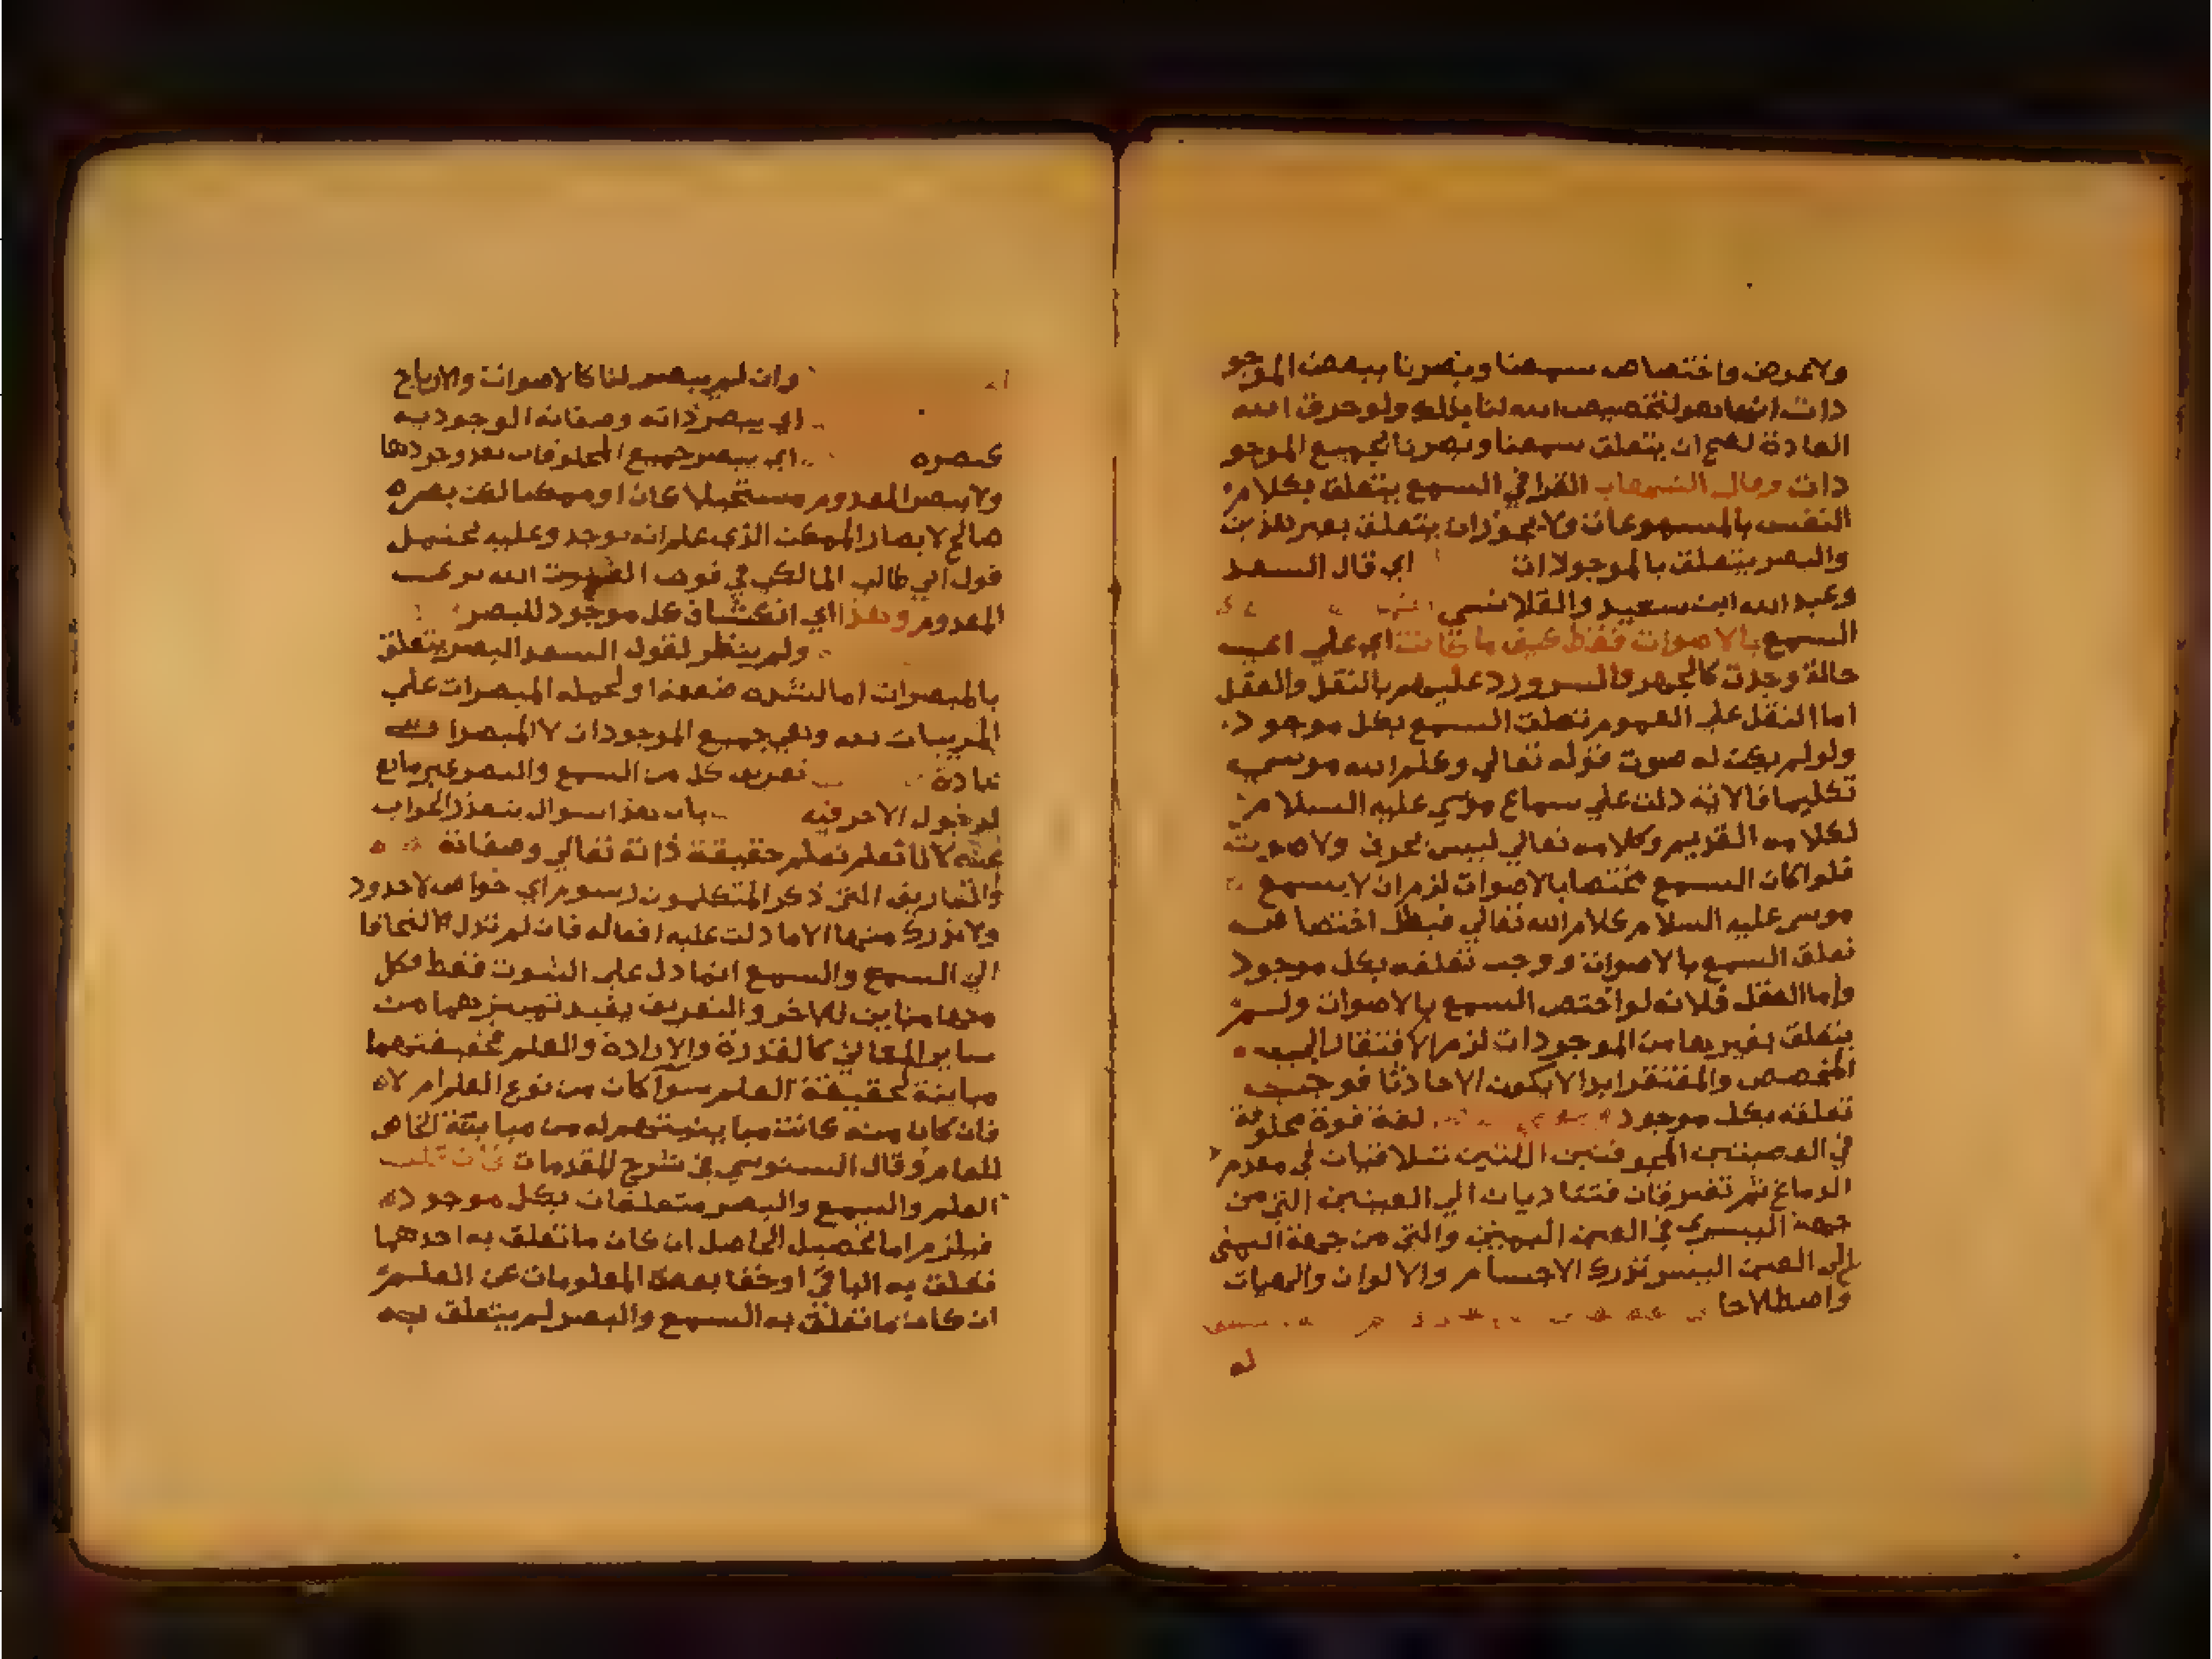 ولاعرض واختصاص سمعنا وبصرنا ببعض الموجو
دات انما هو لتخصيص الله لنا بذلك ولو خرق الله
العادة لصح ان يتعلق سمعنا وبصرنا بجميع الموجو
دات وقال الشهاب القرافي السمع يتعلق بكلام
النفس بالمسموعات ولا يجوز ان يتعلق بغير هذين
والبصر يتعلق بالموجودات اي قال السعد
وعبد الله ابن سعيد والقلانسي
السمع بالاصوات فقط كيف ما كانت اي علي اي
حالة وجدت كالجهر والسر ورد عليهم بالنقل والعقل
اما النقل علي العموم تتعلق السمع بكل موجود
ولو لم يكن له صوت قوله تعالي وكلم الله موسي
تكليما فالاية دلت علي سماع موسي عليه السلام
لكلامه القديم وكلامه تعالي ليس بحرف ولا صوت
فلو كان السمع مختصا بالاصوات لزم ان لا يسمع
موسي عليه السلام كلام الله تعالي فبطل اختصاص
تعلق السمع بالاصوات ووجب تعلقه بكل موجود
واما العقل فلانه لو اختص السمع بالاصوات ولم
يتعلق بغيرها من الموجودات لزم الافتقار الي
المخصص والمفتقر ابدا لا يكون الا حادثا فوجب
تعلقه بكل موجود لغة قوة مخلوقة
في العصبتين المجوفتين اللتين تتلاقيان في مقدم
الدماغ ثم تفترقان فتتاديان الي العينين التي من
جهة اليسري في العين اليمني والتي من جهة اليمني
الي العين اليسر تدرك الاجسام والالوان والهيات
واصطلاحا
له
وان لم يبصر لنا كالاصوات والارياح
اي يبصر ذاته وصفاته الوجودية
كبصره اي يبصر جميع المخلوقات بعد وجودها
ولا يبصر المعدوم مستحيلا كان او ممكنا لكن بصره
صالح لابصار الممكن الذي علم انه يوجد وعليه يحمل
قول ابي طالب المالكي في قوت القلوب ان الله يري
المعدوم وهذا اي انكشاف كل موجود للبصر
ولم ينظر لقول السعد البصر يتعلق
بالمبصرات اما لشدة ضعفه او لحمله المبصرات علي
المرييات له وهي جميع الموجودات لا المبصرات
عادة تعريف كل من السمع والبصر غير مانع
لدخول الاخر فيه بان هذا سوال يتعذر الجواب
عنه لانا لم نعلم حقيقة ذاته تعالي وصفاته
والتعاريف التي ذكر المتكلمون رسوم اي خواص لا حدود
ولا ندرك منها الا ما دلت عليه افعاله فان لم تدل فالتجانا
الي السمع والسمع انما دل علي الثبوت فقط فكل
منهما مباين للاخر والتعريف يفيد تمييزهما من
ساير المعاني كالقدرة والارادة والعلم فحقيقتهما
مباينة لحقيقة العلم سوآ كان من نوع العلم ام لا
فان كان منه كانت مباينتهم له من مباينة الخاص
للعام وقال السنوسي في شرح المقدمات فان قلت
العلم والسمع والبصر متعلقات بكل موجود
فيلزم اما تحصيل الحاصل ان كان ما تعلق به احدهما
تعلق به الباقي او خفا بعض المعلومات عن العلم
ان كان ما تعلق به السمع والبصر لم يتعلق به